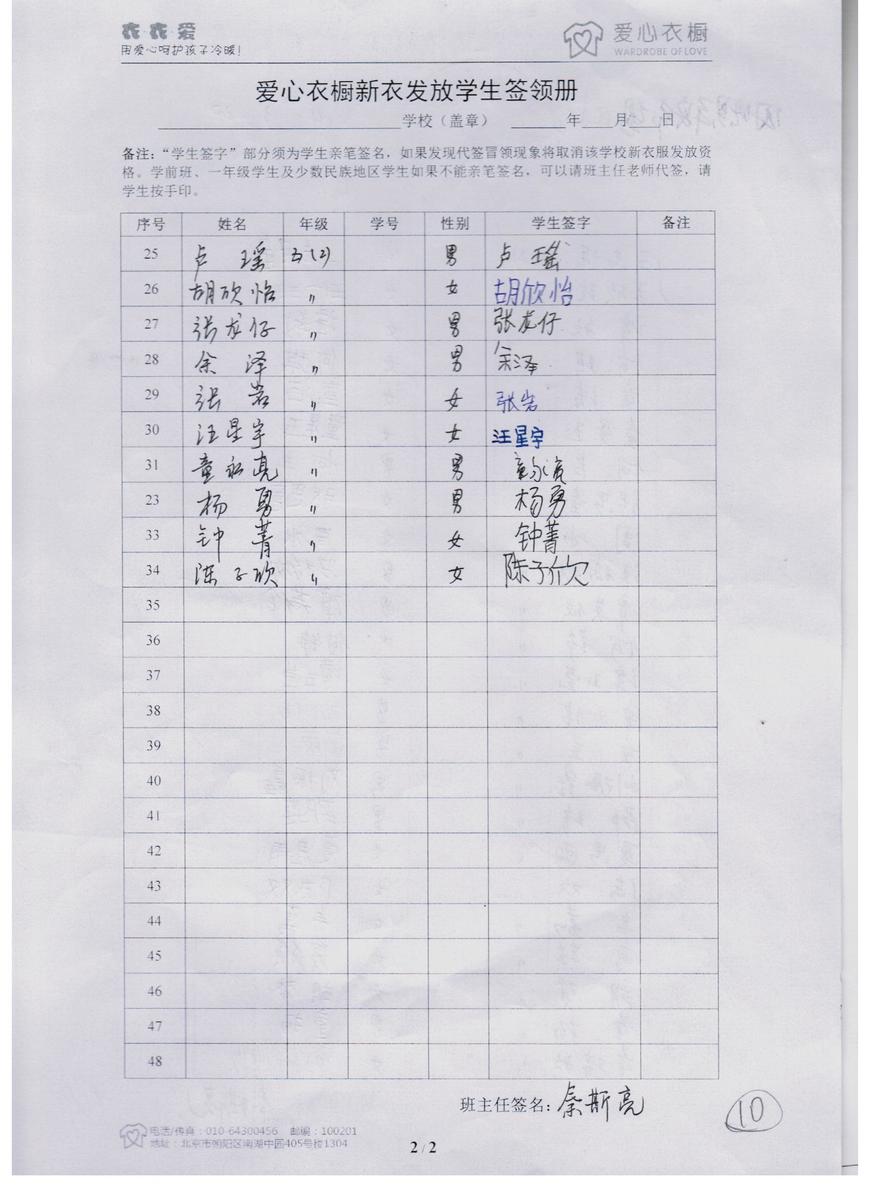 衣·衣·爱
用爱心呵护孩子冷暖!
爱心衣橱
WARDROBE OF LOVE
爱心衣橱新衣发放学生签领册
学校（盖章） 年 月 日
备注：“学生签字”部分须为学生亲笔签名，如果发现代签冒领现象将取消该学校新衣服发放资
格。学前班、一年级学生及少数民族地区学生如果不能亲笔签名，可以请班主任老师代签，请
学生按手印。
序号 姓名 年级 学号 性别 学生签字 备注
25 卢瑶 五(2) 男 卢瑶
26 胡欣怡 〃 女 胡欣怡
27 张龙仔 〃 男 张龙仔
28 余泽 〃 男 余泽
29 张岩 〃 女 张岩
30 汪星宇 〃 女 汪星宇
31 童 亮 〃 男
23 杨勇 〃 男 杨勇
33 钟菁 〃 女 钟菁
34 陈子欣 〃 女 陈子欣
35
36
37
38
39
40
41
42
43
44
45
46
47
48
班主任签名：秦斯亮
10
电话/传真：010-64300456 邮编：100201
地址：北京市朝阳区南湖中园405号楼1304
2 / 2